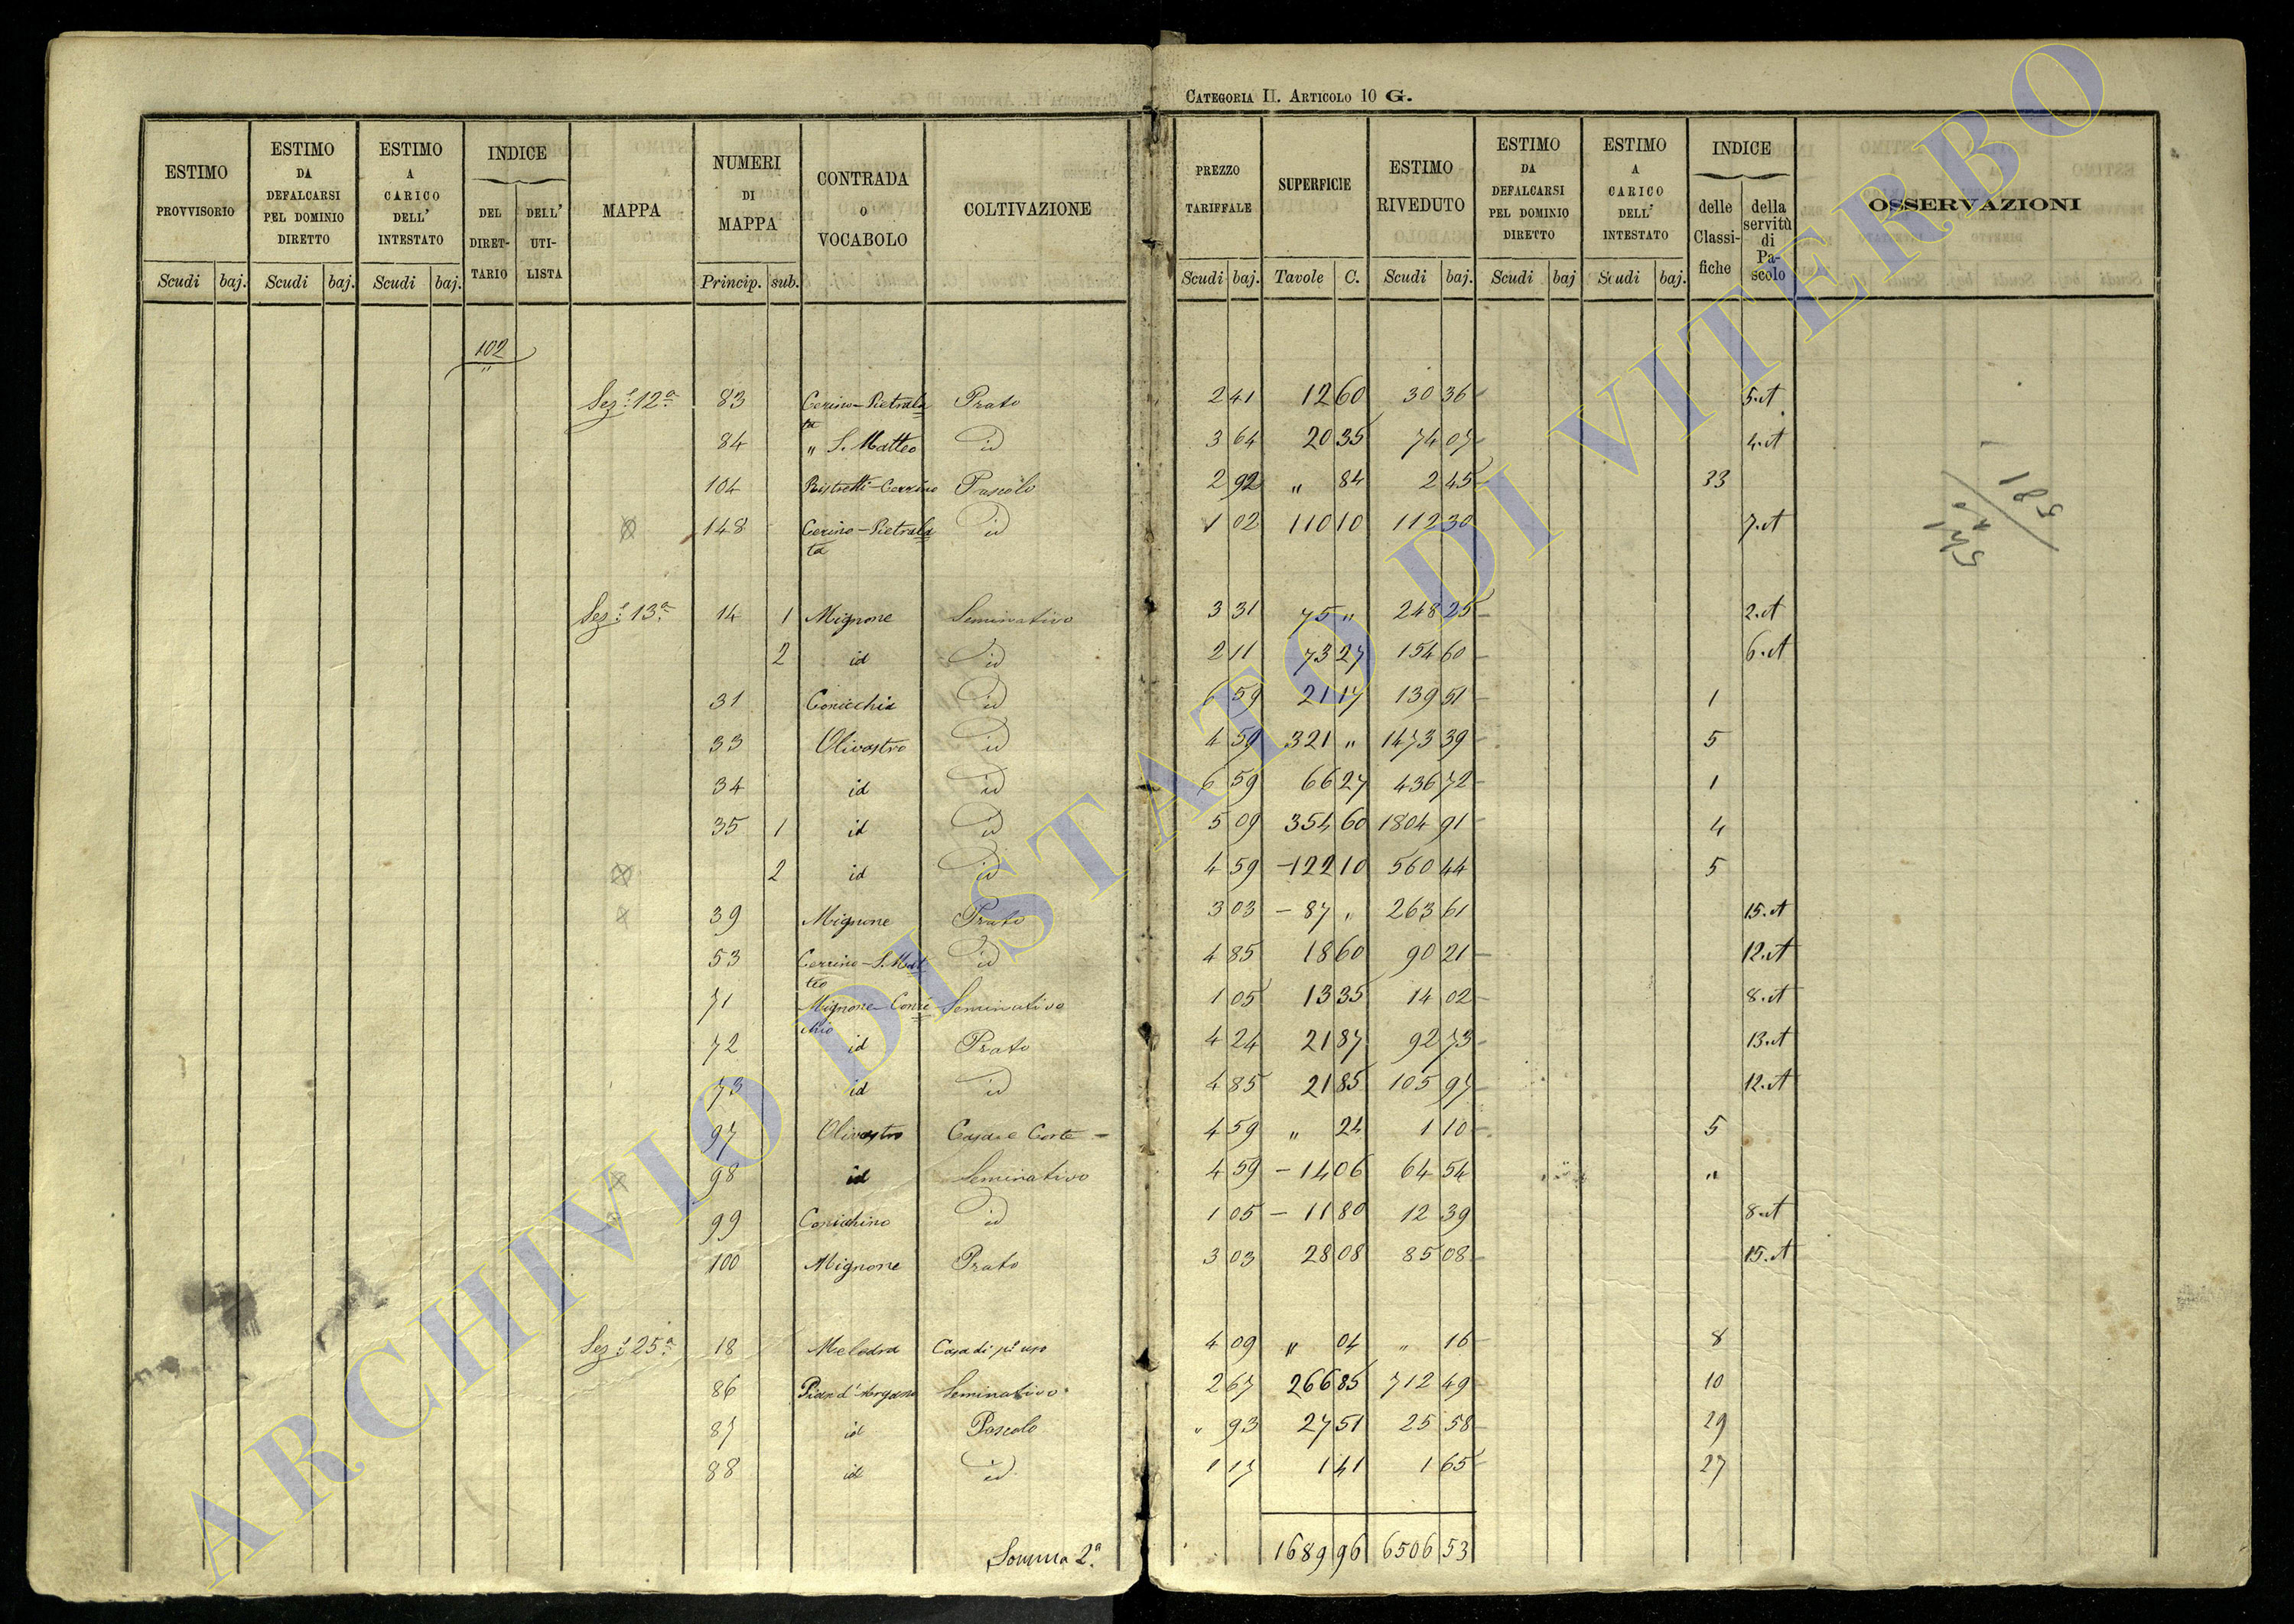 CATEGORIA II. ARTICOLO 10 G.
ESTIMO PROVVISORIO Scudi baj.
ESTIMO DA DEFALCARSI PEL DOMINIO DIRETTO Scudi baj.
ESTIMO A CARICO DELL' INTESTATO Scudi baj.
INDICE DEL DIRETTARIO DELL' UTILISTA
MAPPA
NUMERI DI MAPPA Princip. sub.
CONTRADA O VOCABOLO
COLTIVAZIONE
PREZZO TARIFFALE Scudi baj.
SUPERFICIE Tavole C.
ESTIMO RIVEDUTO Scudi baj.
ESTIMO DA DEFALCARSI PEL DOMINIO DIRETTO Scudi baj
ESTIMO A CARICO DELL' INTESTATO Scudi baj.
INDICE delle Classifiche della servitù di Pascolo
OSSERVAZIONI
102
Sez.e 12a 83 Cerino-Pietrala Prato 2 41 12 60 30 36 5.A
ta
84 " S. Matteo id 3 64 20 35 74 07 4.A
104 Ristretti-Cerrino Pascolo 2 92 " 84 2 45 33
148 Cerino-Pietrala id 1 02 110 10 112 30 7.A
ta
Sez.e 13a 14 1 Mignone Seminativo 3 31 75 " 248 25 2.A
2 id id 2 11 73 27 154 60 6.A
31 Conicchia id 6 59 21 17 139 51 1
33 Olivastro id 4 59 321 " 1473 39 5
34 id id 6 59 66 27 436 72 1
35 1 id id 5 09 354 60 1804 91 4
2 id id 4 59 122 10 560 44 5
39 Mignone Prato 3 03 87 " 263 61 15.A
53 Cerrino-S. Mat id 4 85 18 60 90 21 12.A
teo
71 Mignone-Conic Seminativo 1 05 13 35 14 02 8.A
chio
72 id Prato 4 24 21 87 92 73 13.A
73 id id 4 85 21 85 105 97 12.A
97 Olivastro Casa e Corte 4 59 " 24 1 10 5
98 id Seminativo 4 59 14 06 64 54 "
99 Conicchino id 1 05 11 80 12 39 8.A
100 Mignone Prato 3 03 28 08 85 08 15.A
Sez.e 25a 18 Meledra Casa di pr uso 4 09 " 04 " 16 8
86 Pian d'Argano Seminativo 2 67 266 85 712 49 10
87 id Pascolo " 93 27 51 25 58 29
88 id id 1 17 1 41 1 65 27
Somma 2a 1689 96 6506 53
ARCHIVIO DI STATO DI VITERBO